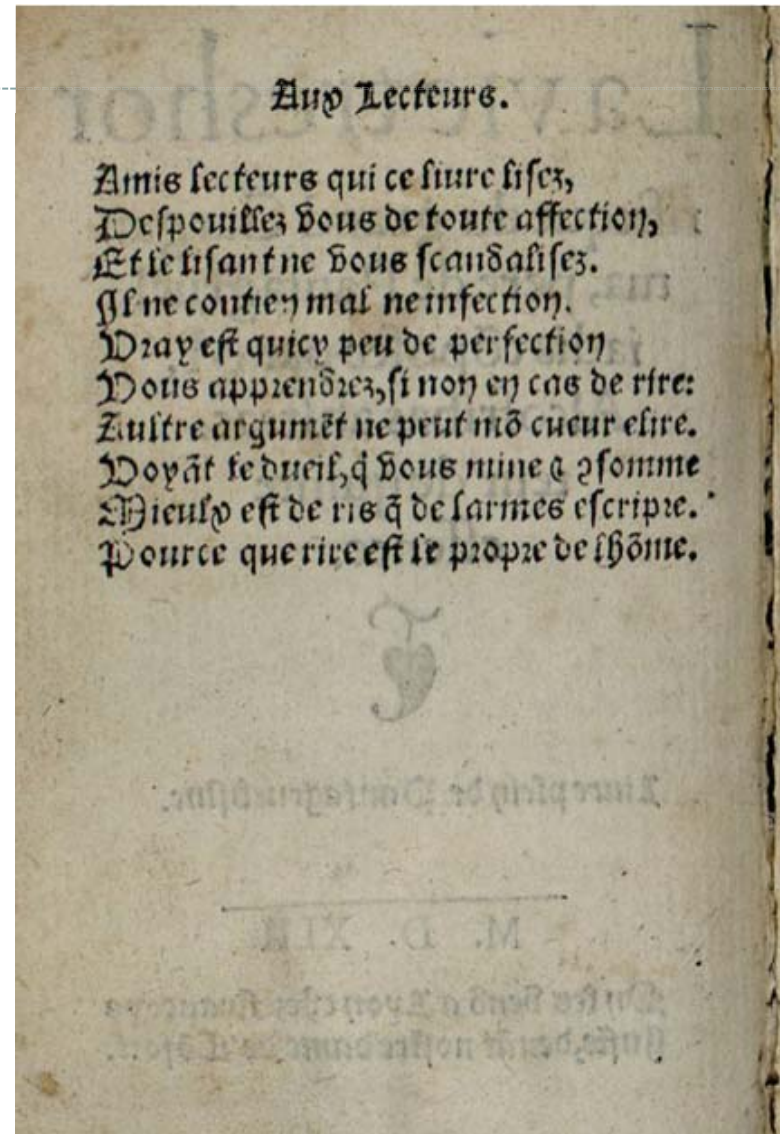 Aux Lecteurs.
Amis lecteurs qui ce liure lisez,
Despouillez vous de toute affection,
Et le lisant ne vous scandalisez.
Il ne contien mal ne infection.
Vray est quicy peu de perfection
Vous apprendrez, si non en cas de rire:
Aultre argumẽt ne peut mõ cueur elire.
Voyãt le dueil, q̃ vous mine ⁊ ꝯsomme
Mieulx est de ris q̃ de larmes escripre.
Pource que rire est le propre de lhõme.
Liure plein de Pantagruelisme.
M. D. XLII